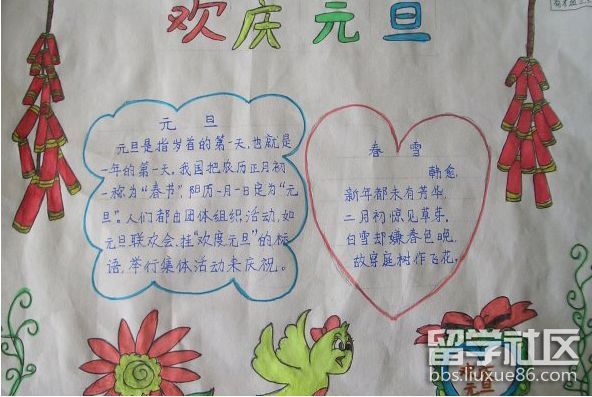 欢庆元旦
元 旦
元旦是指岁首的第一天，也就是
一年的第一天，我国把农历正月初
一称为“春节”，阳历一月一日定为“元
旦”。人们都由团体组织活动，如
元旦联欢会，挂“欢度元旦”的标
语，举行集体活动来庆祝。
春 雪
韩愈
新年都未有芳华，
二月初惊见草芽，
白雪却嫌春色晚，
故穿庭树作飞花。
元旦
留学社区
bbs.liuxue86.com